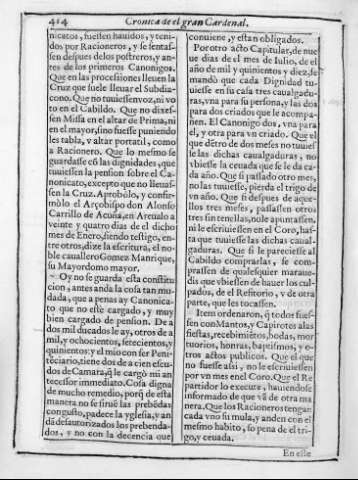 414
Cronica de el gran Cardenal.
nicatos, fuessen hauidos, y teni-
dos por Racioneros, y se sentas-
sen despues de los postreros, y an-
tes de los primeros Canonigos.
Que en las processiones lleuen la
Cruz que suele lleuar el Subdia-
cono. Que no tuuiessen voz, ni vo
to en el Cabildo. Que no dixes-
sen Missa en el altar de Prima, ni
en el mayor, sino fuesse puniendo
les tabla, y altar portatil, como
a Racionero. Que lo mesmo se
guardasse cõ las dignidades, que
tuuiessen la pension sobre el Ca-
nonicato, excepto que no lleuas-
sen la Cruz. Aprobólo, y confir-
mólo el Arçobispo don Alonso
Carrillo de Acuña, en Areualo a
veinte y quatro dias de el dicho
mes de Enero, siendo testigo, en-
tre otros, dize la escritura, el no-
ble cauallero Gomez Manrique,
su Mayordomo mayor.
Oy no se guarda esta constitu
cion, antes anda la cosa tan mu-
dada, que a penas ay Canonica-
to que no estè cargado, y muy
bien cargado de pension. De a
dos mil ducados le ay, otros de a
mil, y ochocientos, setecientos, y
quinientos: y el mio con ser Peni-
tēciario, tiene dot de a cien escu-
dos de Camara, q̃ le cargò mi an
tecessor immediato. Cosa digna
de mucho remedio, porq̃ de esta
manera no se siruē las prebēdas
con gusto, padece la yglesia, y an
dã desautorizados los prebenda-
dos, y no con la decencia que
conuiene, y estan obligados.
Por otro acto Capitular, de nue
ue dias de el mes de Iulio, de el
año de mil y quinientos y diez, se
mandò que cada Dignidad tu-
uiesse en su casa tres caualgadu-
ras, vna para su persona, y las dos
para dos criados que le acompa-
ñen. El Canonigo dos, vna para
el, y otra para vn criado. Que el
que dētro de dos meses no tuuies
se las dichas caualgaduras, no
vuiesse la ceuada que se le da ca-
da año. Que si passado otro mes,
no las tuuiesse, pierda el trigo de
vn año. Que si despues de aque-
llos tres meses, passassen otros
tres sin tenellas, no le apuntassen,
ni le escriuiessen en el Coro, has-
ta que tuuiesse las dichas caual-
gaduras. Que si le pareciesse al
Cabildo comprarlas, se com-
prassen de qualesquier maraue-
dis que vbiessen de hauer los cul-
pados, de el Refitorio, y de otra
parte, que les tocassen.
Item ordenaron, q̃ todos fues-
sen con Mantos, y Capirotes a las
fiestas, recebimiētos, bodas, mor
tuorios, honras, baptismos, y o-
tros actos publicos. Que el que
no fuesse assi, no le escriuiessen
por vn mes en el Coro. Que el Re
partidor lo execute, hauiendose
informado de que vã de otra ma
nera. Que los Racioneros tengan
cada vno su mula, y anden con el
mesmo habito, so pena de el tri-
go, y ceuada.
En este